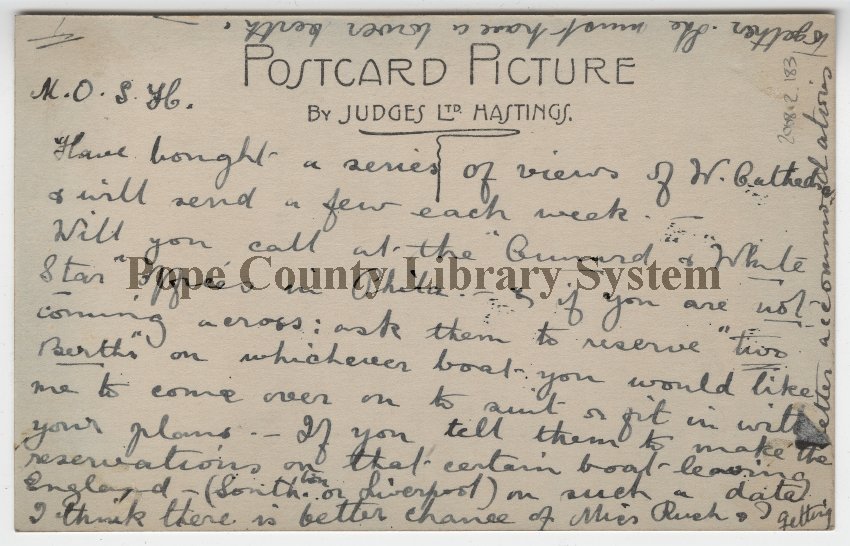 POSTCARD PICTURE
BY JUDGES LTD. HASTINGS.
M.O.S.H.
Have bought a series of views of W. Cathedral
& will send a few each week. —
Will you call at the "Cunard" & "White
Star" Offices in Phila. — & if you are not
coming across: ask them to reserve "two
Berths" on whichever boat you would like
me to come over on to suit or fit in with
your plans. — If you tell them to make the
reservations on that certain boat leaving
England — (Southton or Liverpool) on such a date
I think there is better chance of Miss Rush & I
getting
better accommodations
together. She must have a lower berth.
2008.2.183
Pope County Library System